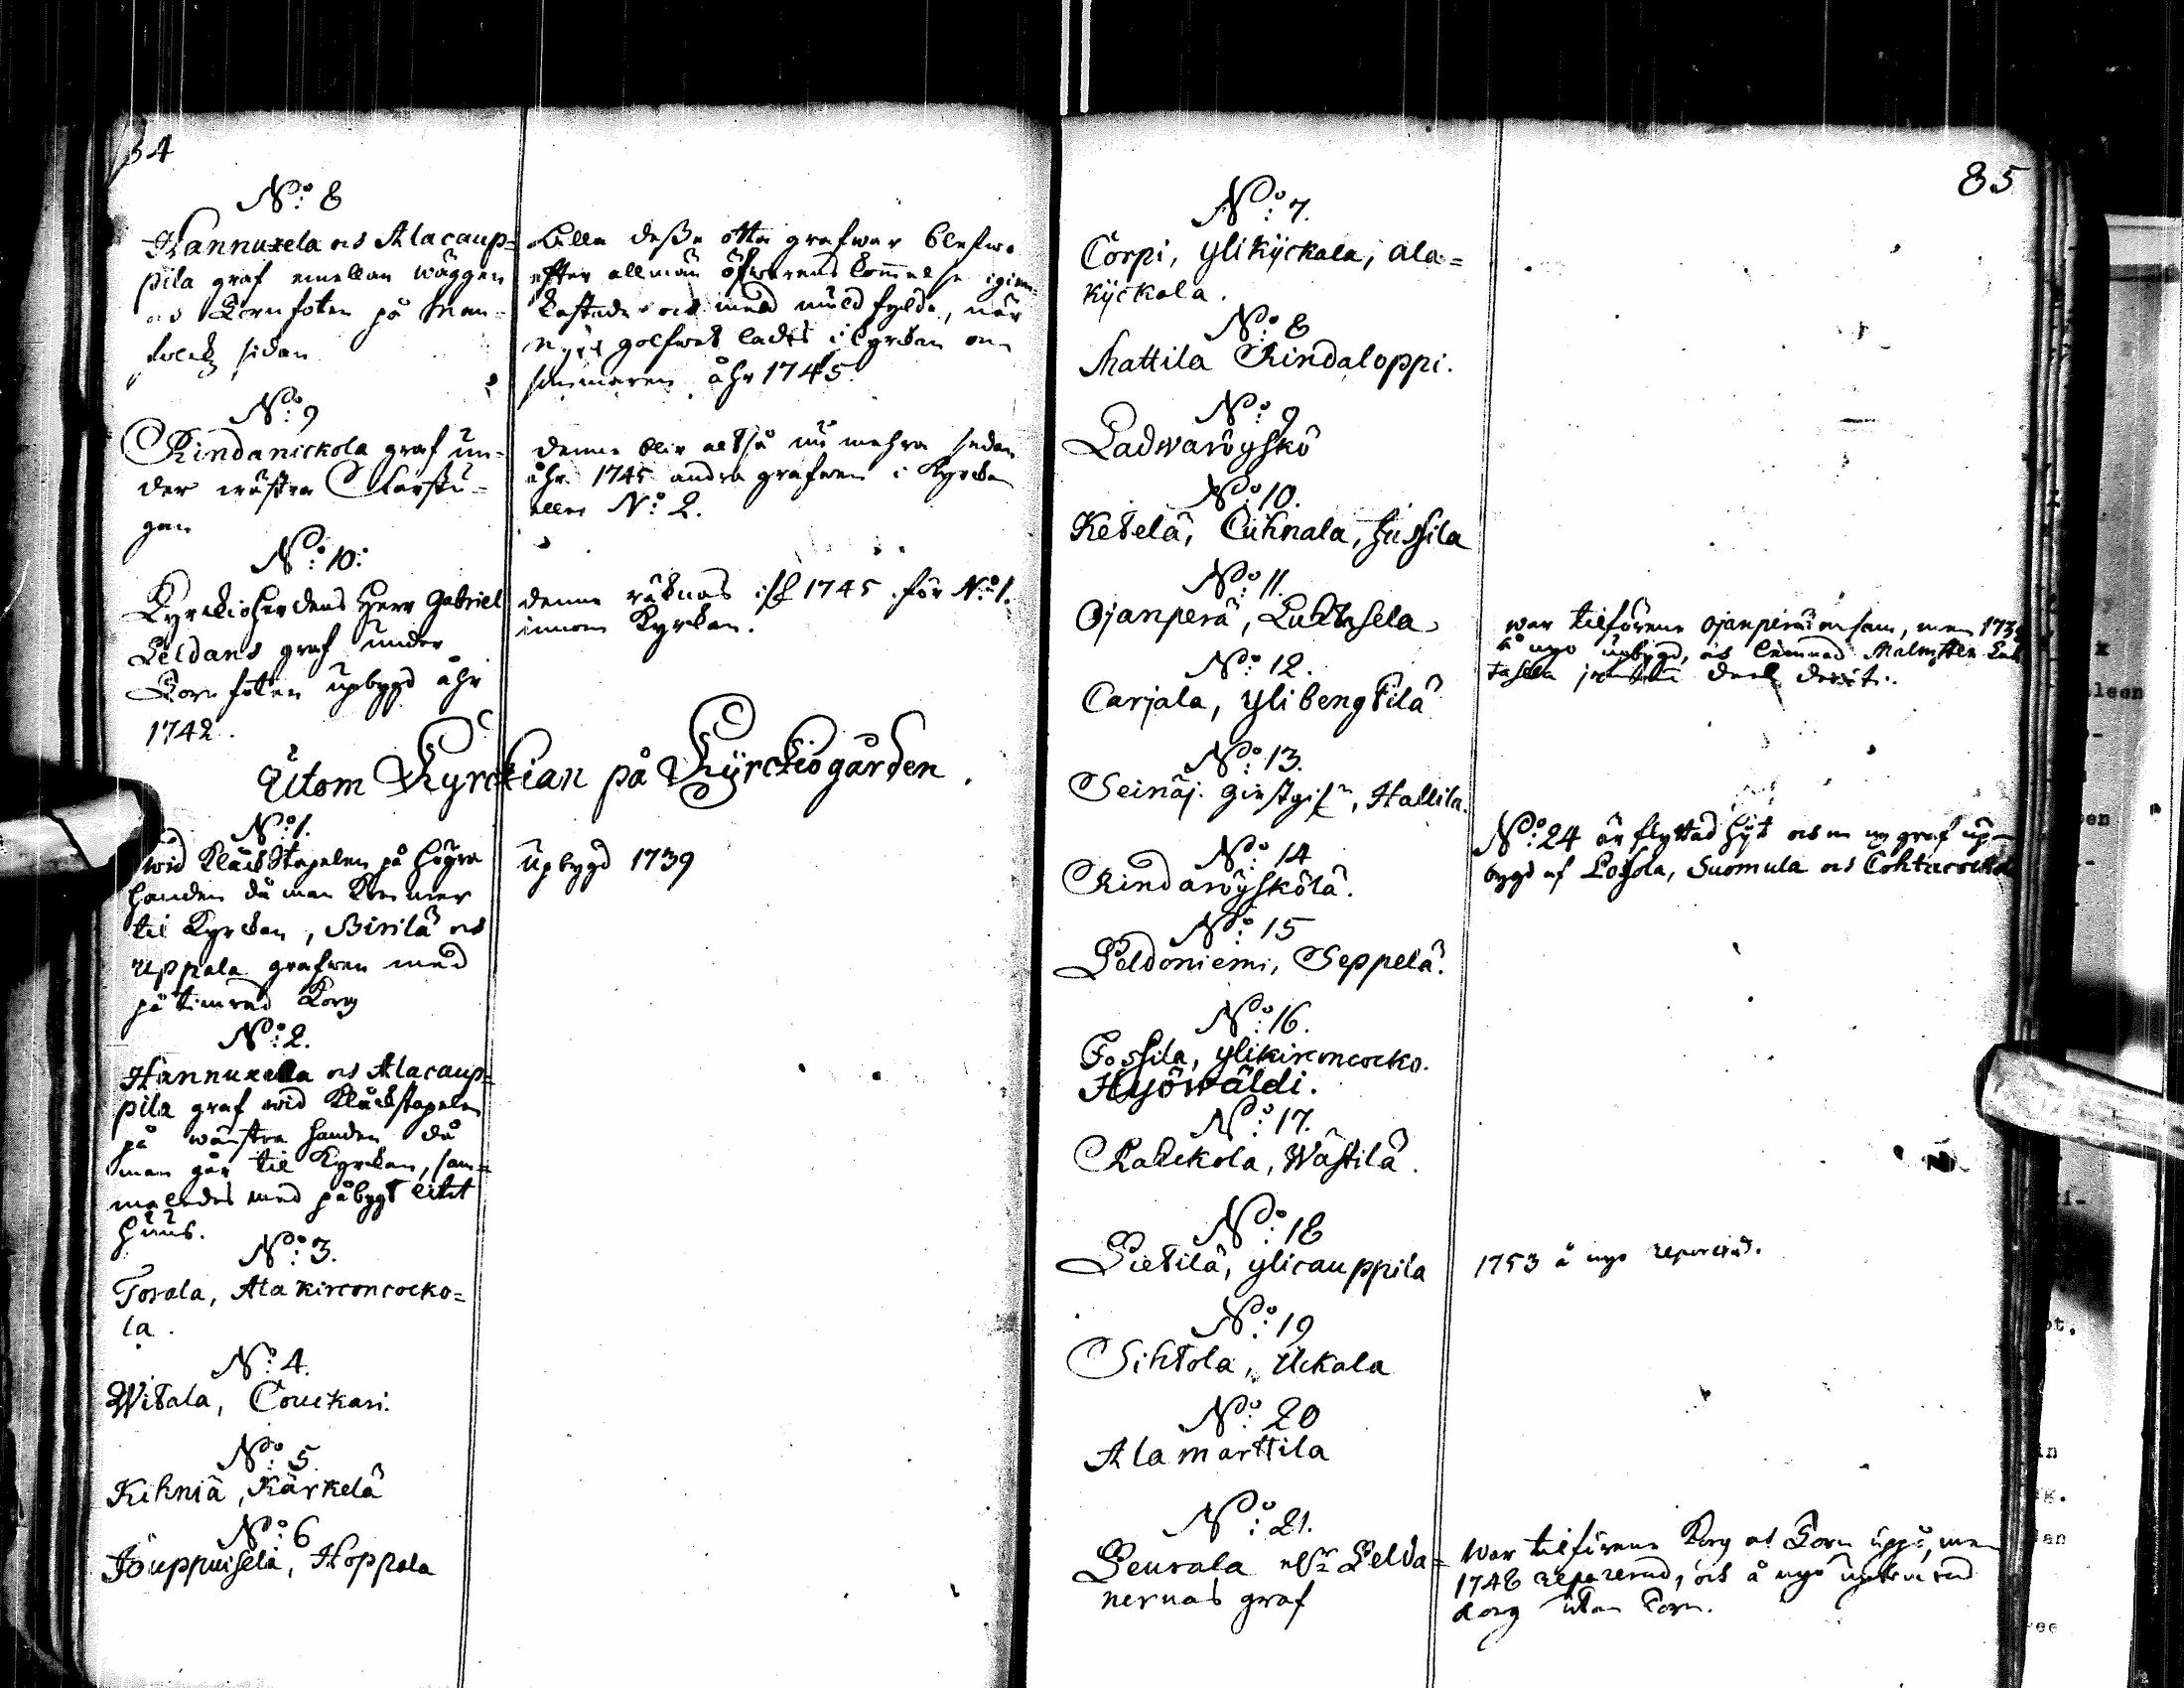 84
N:o 8
Hannuxela och Alacaup=
pila graf emellan wäggen
och Tornfoten på Man=
folcks sidan
Alla deße otta grafwar blefwo
effter allmän öfwerens kommelse igen=
kastade och med muld fylde, när
nyia golfwet lades i Kyrckan om
sommaren åhr 1745.
N:o 9
Rindanickola graf un=
der wästra Clåckstu=
gan
denne blir altså nu mehra sedan
åhr 1745 andra grafwen i Kyrckan
eller N:o 2.
N:o 10:
Kyrckioherdens Herr Gabriel
Peldans graf under
Tornfoten upbygd åhr
1742.
denne räcknas 1745 för N:o 1.
innom Kyrckan.
Utom Kyrckian på Kyrckiogården.
N:o 1.
wid Klåckstapelen på högra
handen då man kommer
til Kyrckan, Birilä och
Uppala grafwen med
på timrad Korg
Upbygd 1739
N:o 2.
Hannuxela och Alacaup=
pila graf wid Klåckstapelen
på wänstra handen då
man går til Kyrckan, sam=
maledes med påbygt litet
huus.
N:o 3.
Torala, Ala kirconcocko=
la.
N:o 4.
Witala, Couckari.
N:o 5
Kihniä, Kärkelä
N:o 6
Jouppuiselä, Hoppala
85
N:o 7.
Corpi, ylikyckala, ala=
kyckala.
N:o 8
Mattila Rindaloppi.
N:o 9
Ladwaröyskö
N:o 10.
Ketelä, Cuhnala, Jussila
N:o 11.
Ojanperä, Luhtasela
war tilförene Ojanperä ensam, men
å nyo upbygd, och
N:o 12.
Carjala, ylibengtilä
N:o 13.
Seinäj. giestgif:n, Hallila.
N:o 14
Rindaröyskölä.
N:o 24 är flyttad hyt och en ny graf up=
bygd af Loßola, Suomula och
N:o 15
Peldoniemi, Seppelä.
N:o 16.
Fossila, ylikirconcocko.
Hyöwäldi.
N:o 17.
Raluckola, Wästilä.
N:o 18
Pietilä, ylicauppila
1753 å nyo reparerad.
N:o 19
Sihtola, Uckala
N:o 20
Alamarttila
N:o 21.
Peurala els:r Pelda=
nernas graf
War tilförene Korg och Torn uppå, men
1748 reparerad, och å nyo uptimrad
Korg utan Torn.